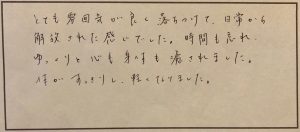 とても雰囲気が良く落ちつけて、日常から
解放された感じでした。時間も忘れ、
ゆっくりと心も身体も癒されました。
体がすっきりし、軽くなりました。